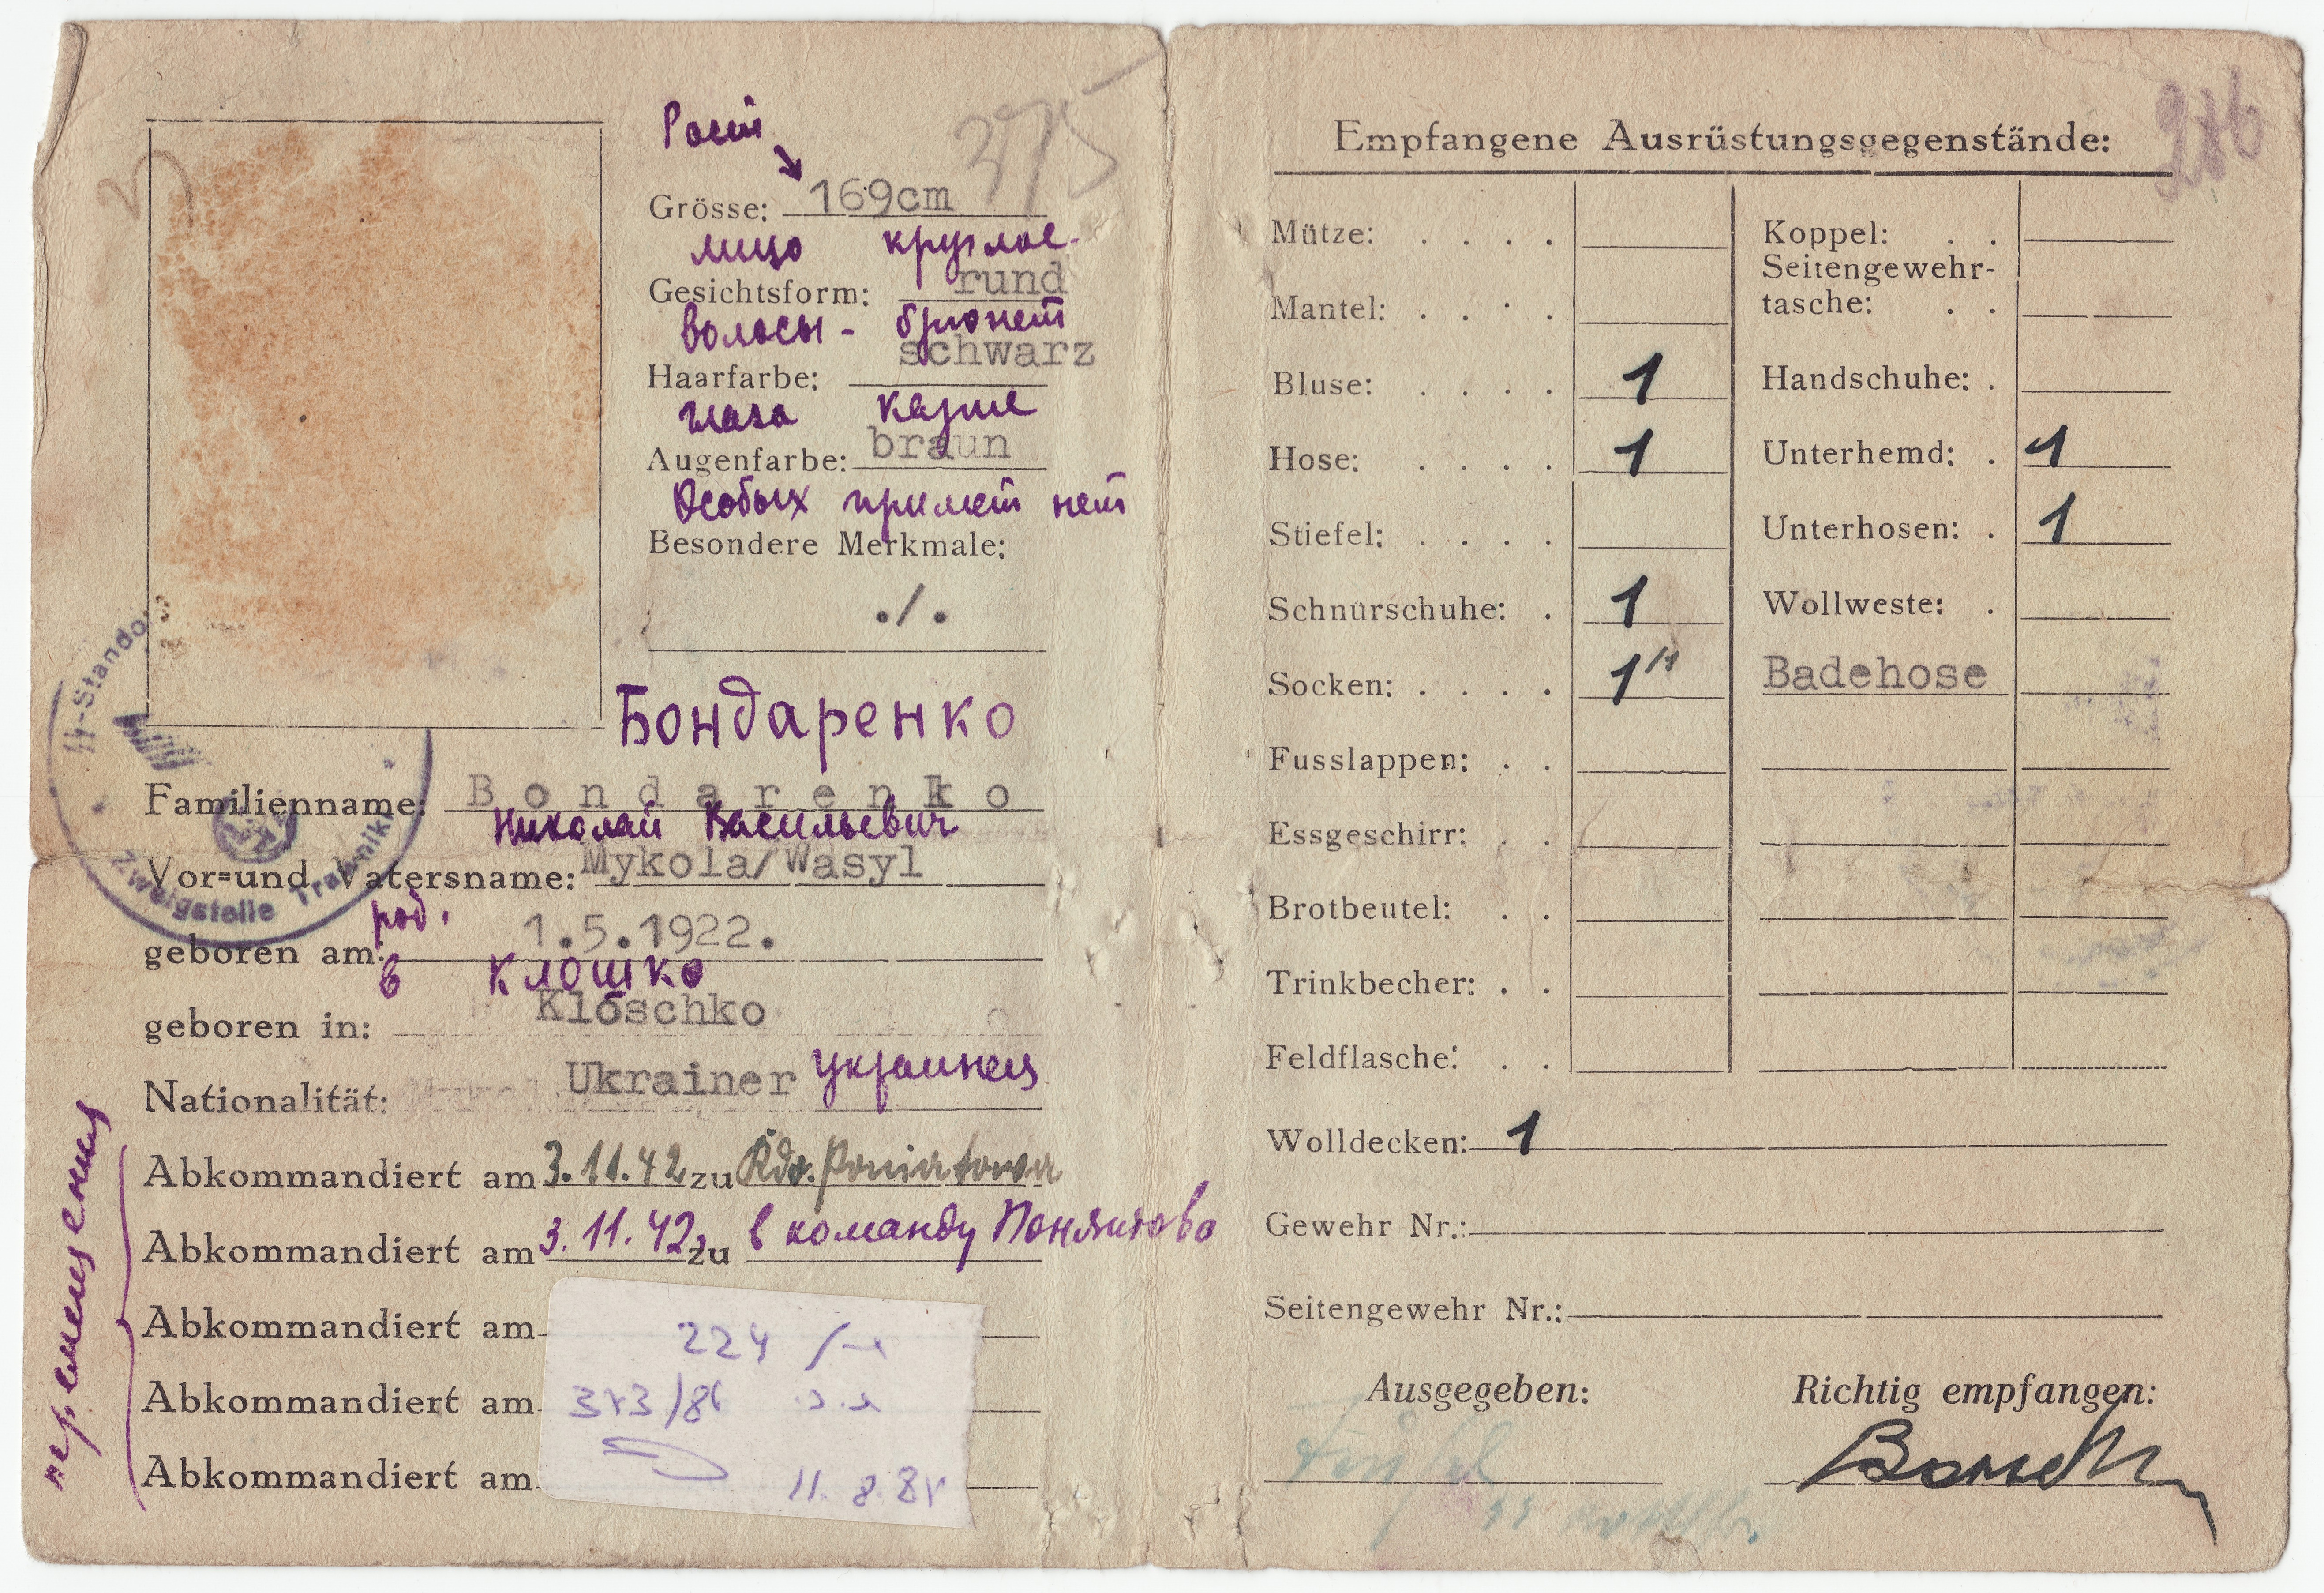 375
Рост
Grösse: 169cm
лицо круглое.
Gesichtsform: rund
волосы - брюнет
Haarfarbe: schwarz
глаза карие
Augenfarbe: braun
Особых примет нет
Besondere Merkmale:
./.
Бондаренко
Familienname: Bondarenko
Николай Васильевич
Vor=und Vatersname: Mykola/Wasyl
род.
geboren am: 1.5.1922.
в Клошко
geboren in: Kloschko
Nationalität: Ukrainer Украинец
Abkommandiert am 3.11.42 zu Kdo. Poniatowa
Abkommandiert am 3.11.42 zu в команду Понятово
Abkommandiert am
Abkommandiert am
Abkommandiert am
перемещения
224
11. 8. 8
Zweigstelle Trawniki
286
Empfangene Ausrüstungsgegenstände:
Mütze: . . . .
Mantel: . . . .
Bluse: . . . . 1
Hose: . . . . 1
Stiefel: . . . .
Schnürschuhe: . 1
Socken: . . . . 1/1
Fusslappen: . .
Essgeschirr: . .
Brotbeutel: . .
Trinkbecher: . .
Feldflasche: . .
Koppel: . .
Seitengewehr-
tasche: . .
Handschuhe: .
Unterhemd: . 1
Unterhosen: . 1
Wollweste: .
Badehose
Wolldecken: 1
Gewehr Nr.:
Seitengewehr Nr.:
Ausgegeben:
Richtig empfangen: